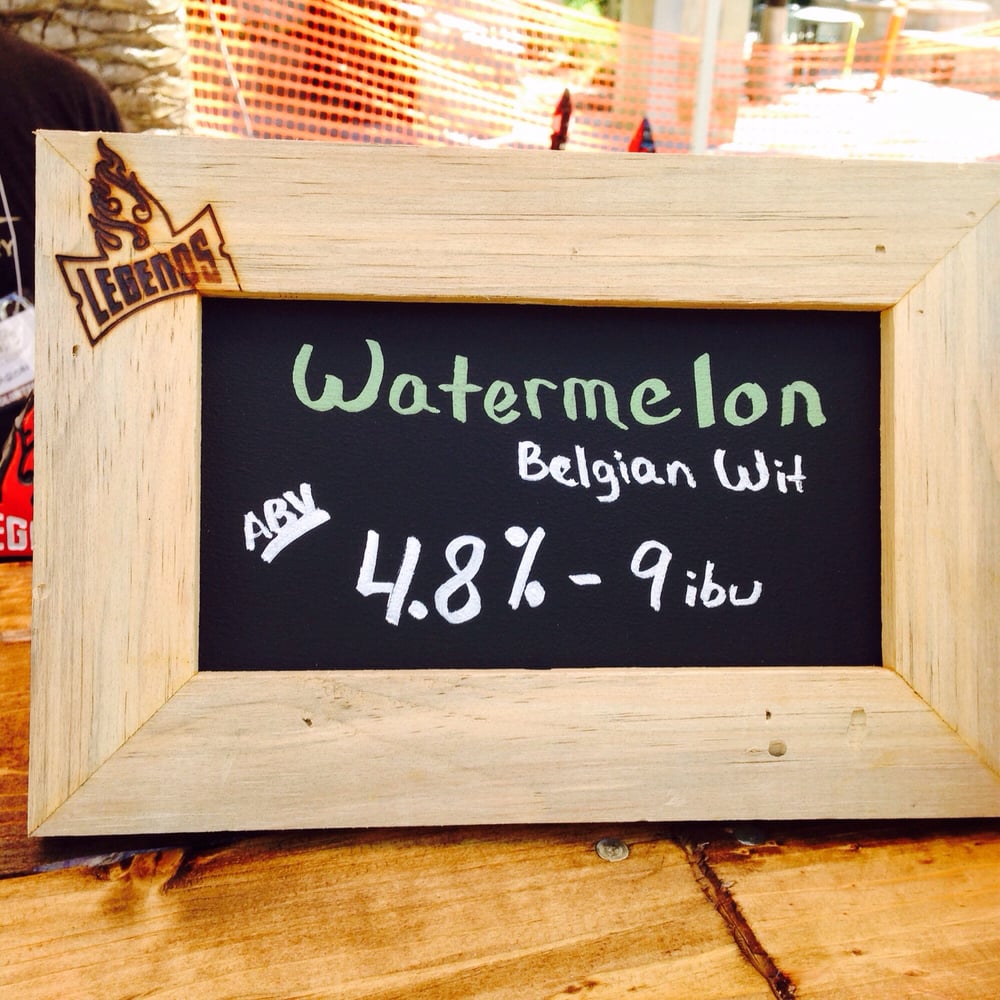 LEGENDS
Watermelon
Belgian Wit
ABV
4.8% - 9 ibu